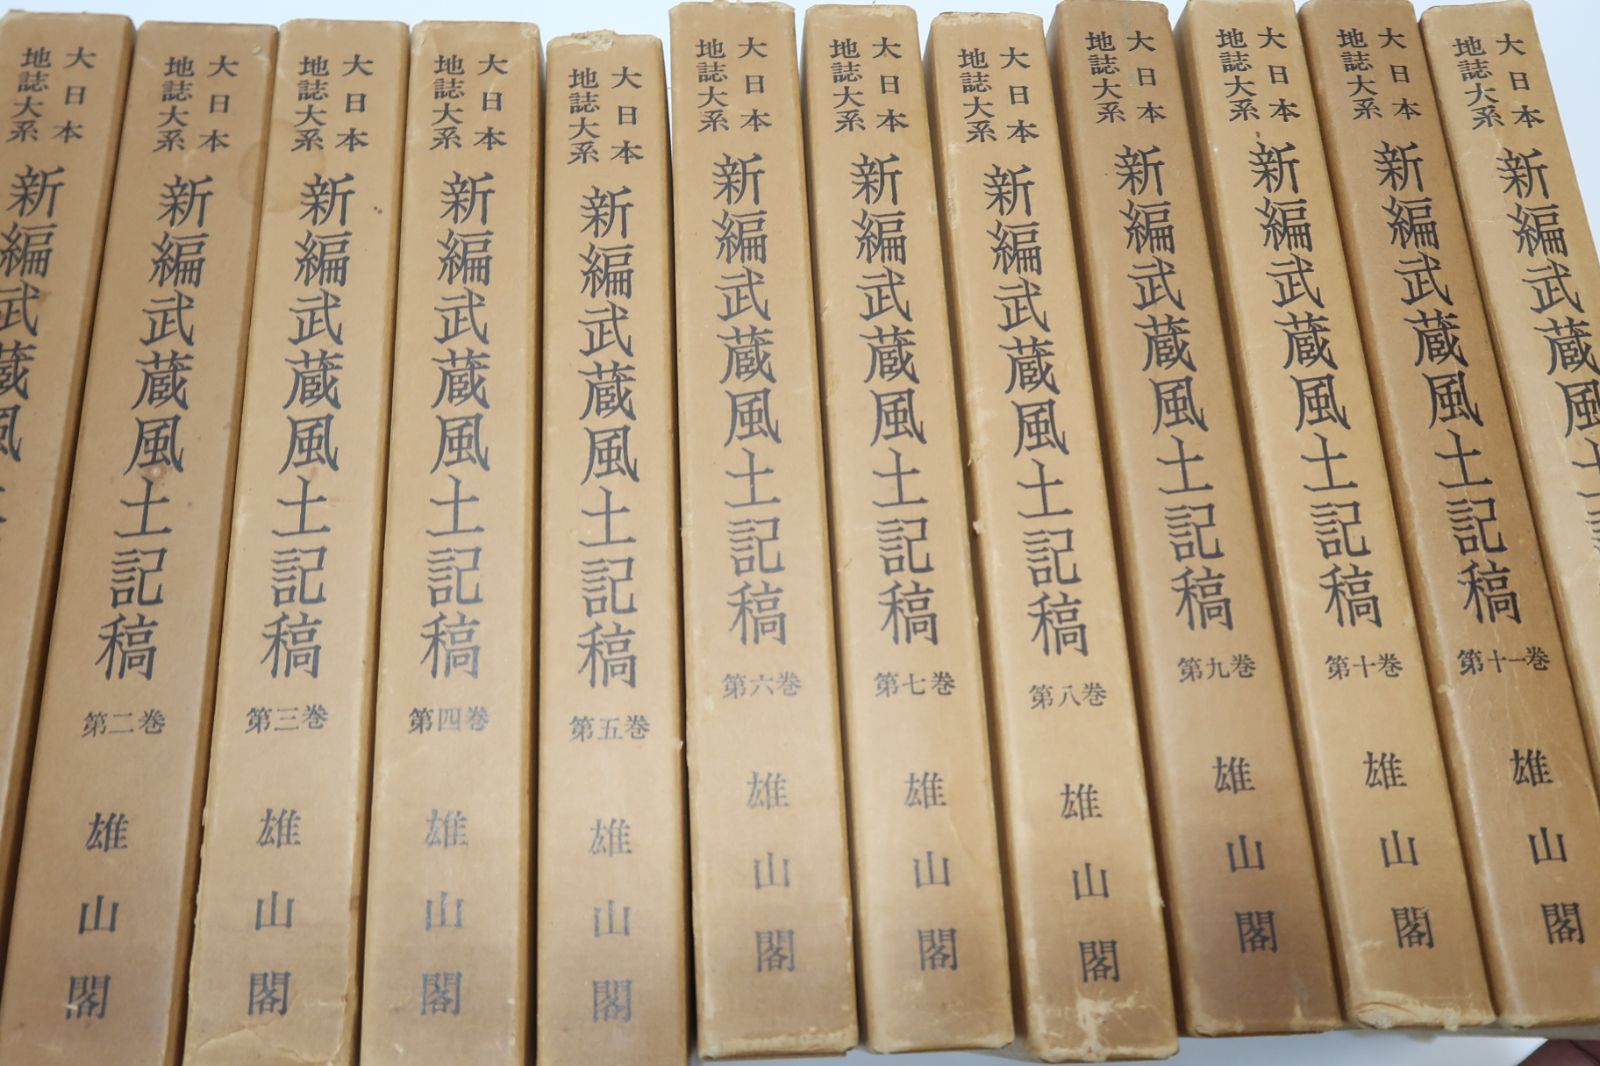 大日本
地誌大系
新編武蔵風
大日本
地誌大系
新編武蔵風土記稿
第二巻
雄山閣
大日本
地誌大系
新編武蔵風土記稿
第三巻
雄山閣
大日本
地誌大系
新編武蔵風土記稿
第四巻
雄山閣
大日本
地誌大系
新編武蔵風土記稿
第五巻
雄山閣
大日本
地誌大系
新編武蔵風土記稿
第六巻
雄山閣
大日本
地誌大系
新編武蔵風土記稿
第七巻
雄山閣
大日本
地誌大系
新編武蔵風土記稿
第八巻
雄山閣
大日本
地誌大系
新編武蔵風土記稿
第九巻
雄山閣
大日本
地誌大系
新編武蔵風土記稿
第十巻
雄山閣
大日本
地誌大系
新編武蔵風土記稿
第十一巻
雄山閣
大日本
地誌大系
新編武蔵風土